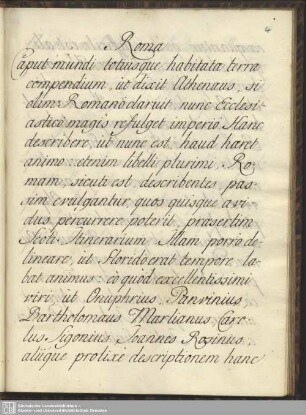 Roma
Caput mundi totiusque habitatæ terræ
compendium, ut dixit Athenæus, si
olim Romano claruit nunc Ecclesi
astico magis refulget imperio. Hanc
describere, ut nunc est, haud hæret
animo: etenim libelli plurimi, Ro
mam, sicuti est describentes, pas:
sim evulgantur, quos quisque avi
dus percurrere poterit, præsertim
Scoti Itinerarium. Illam porro de
lineare, ut florido erat tempore, la
bat animus: eò quòd excellentissimi
viri, ut Onuphrius Panvinius
Bartholomæus Marlianus, Caro
lus Sigonius, Joannes Rosinus
aliique prolixè descriptionem hanc